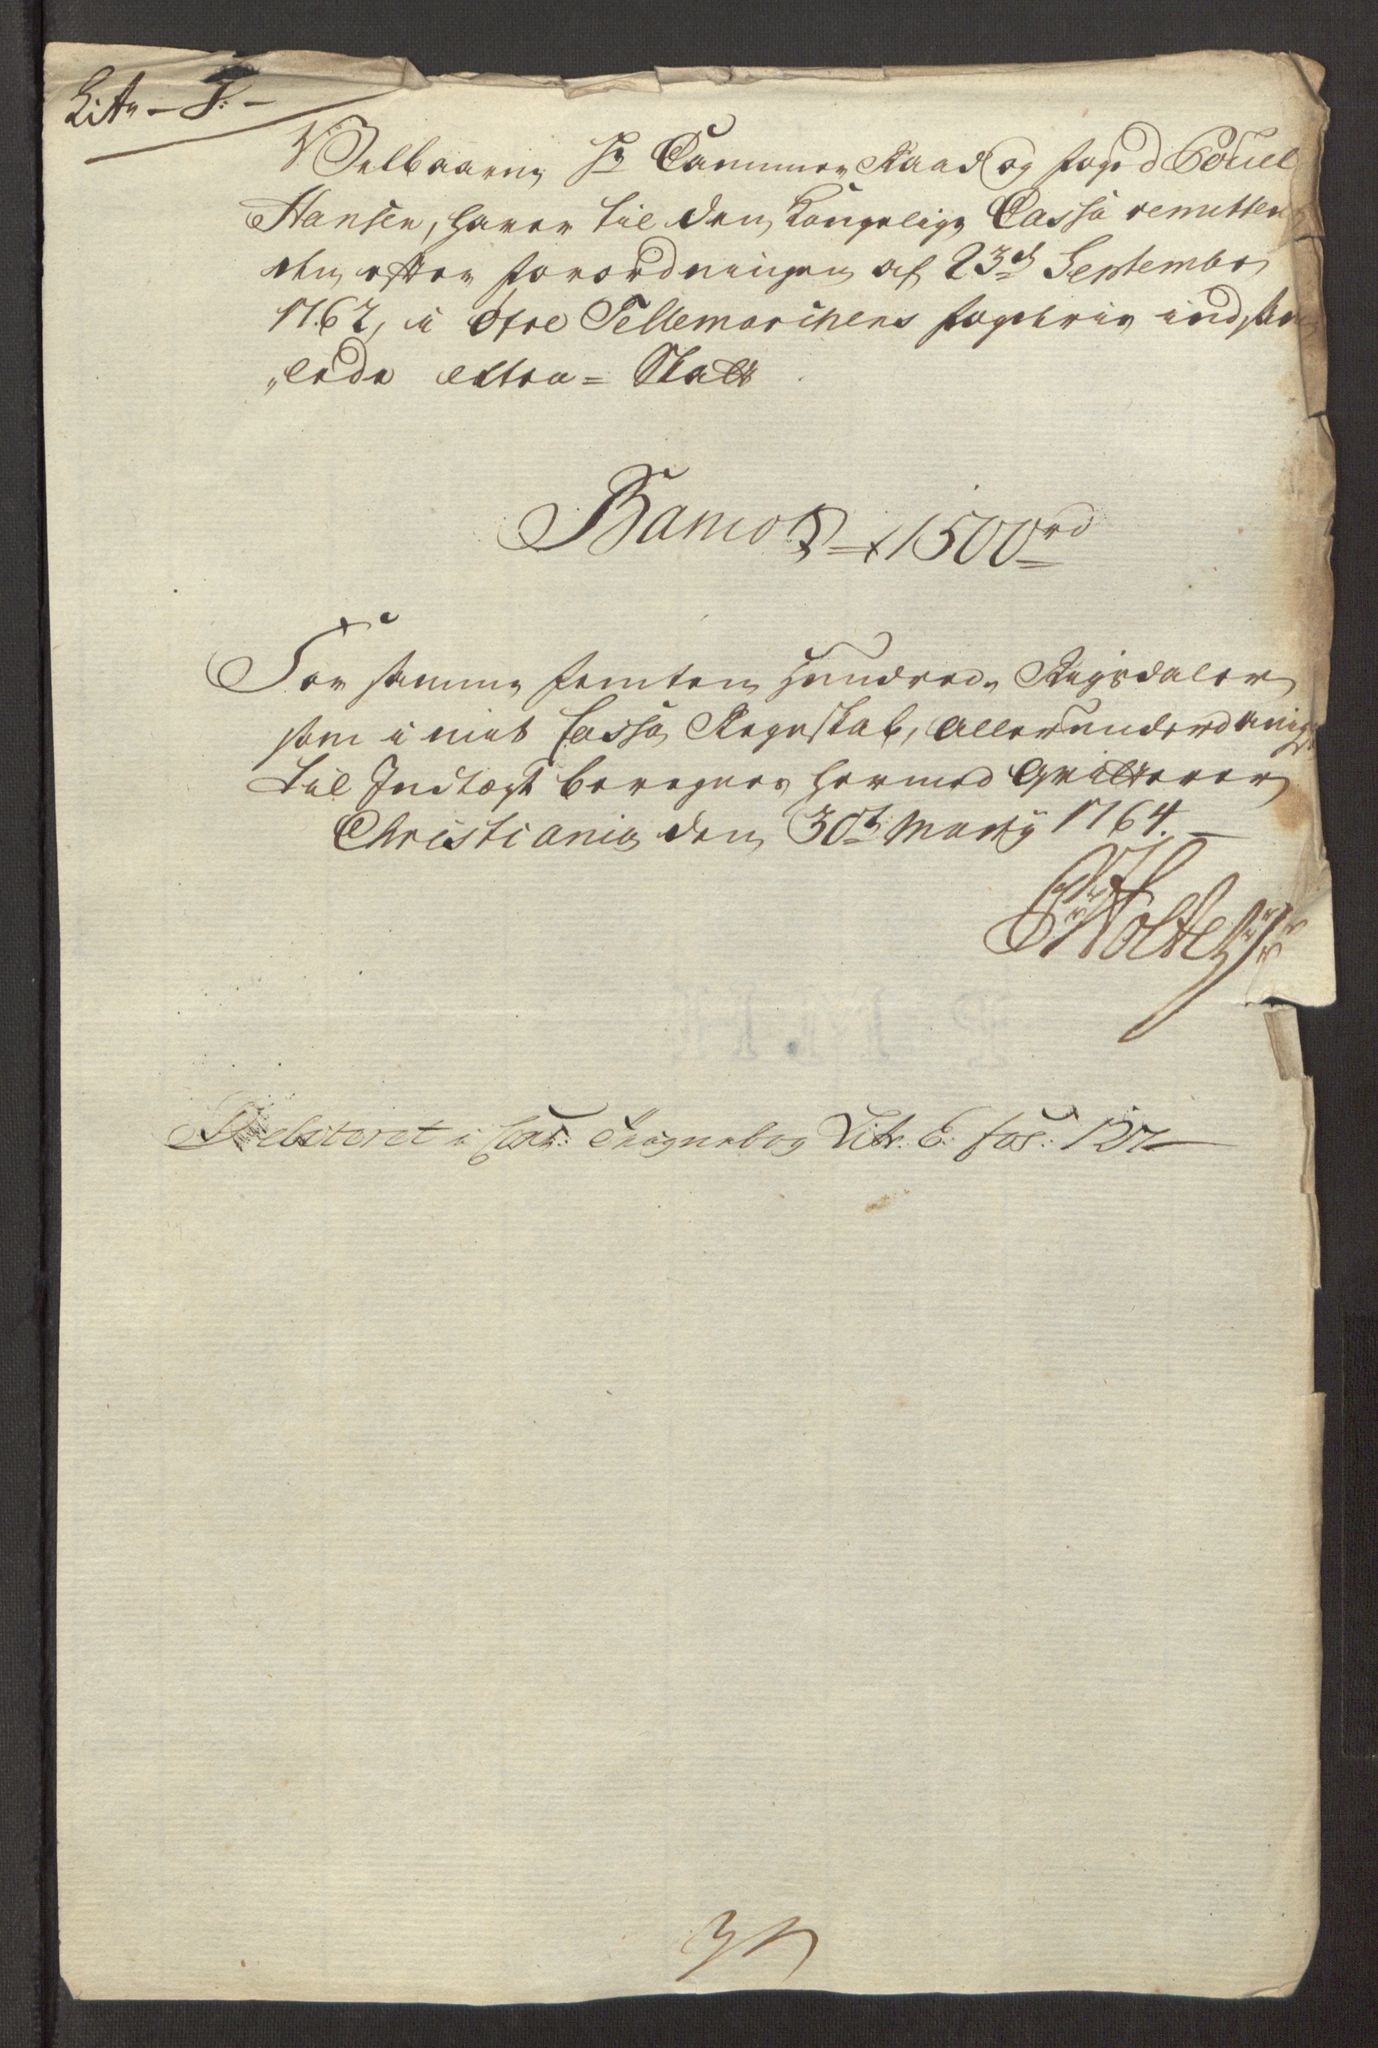 Litr – T: –
Velbaarne Hr Cammer Raad og foged Pouel
Hansen, haver til den Kongelige Cassa remitter
den efter forordningen af 23de September
1762, i Øfre Tellemarchens fogderie indsam
„lede extra= Skatt
Banco S 1500rd
For samme femten Hundrede Rigsdaler
som i miit Cassa Regnskab, allerunderdanigst
til Indtægt beregnes hermed Qvitterer
Christiania den 30te Martij 1764. –
Woltez
Debiteret i Cass: Bog Litr. E. fol: 127